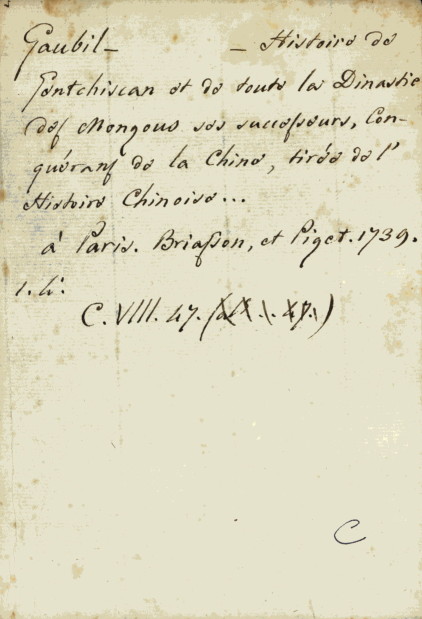 Gaubil – – Histoire de
Gentchiscan et de toute la Dinastie
des Mongous ses successeurs, Con-
quérans de la Chine, tirée de l'
Histoire Chinoise...
à Paris. Briasson, et Piget. 1739.
1. 4°.
C. VIII. 47.
C